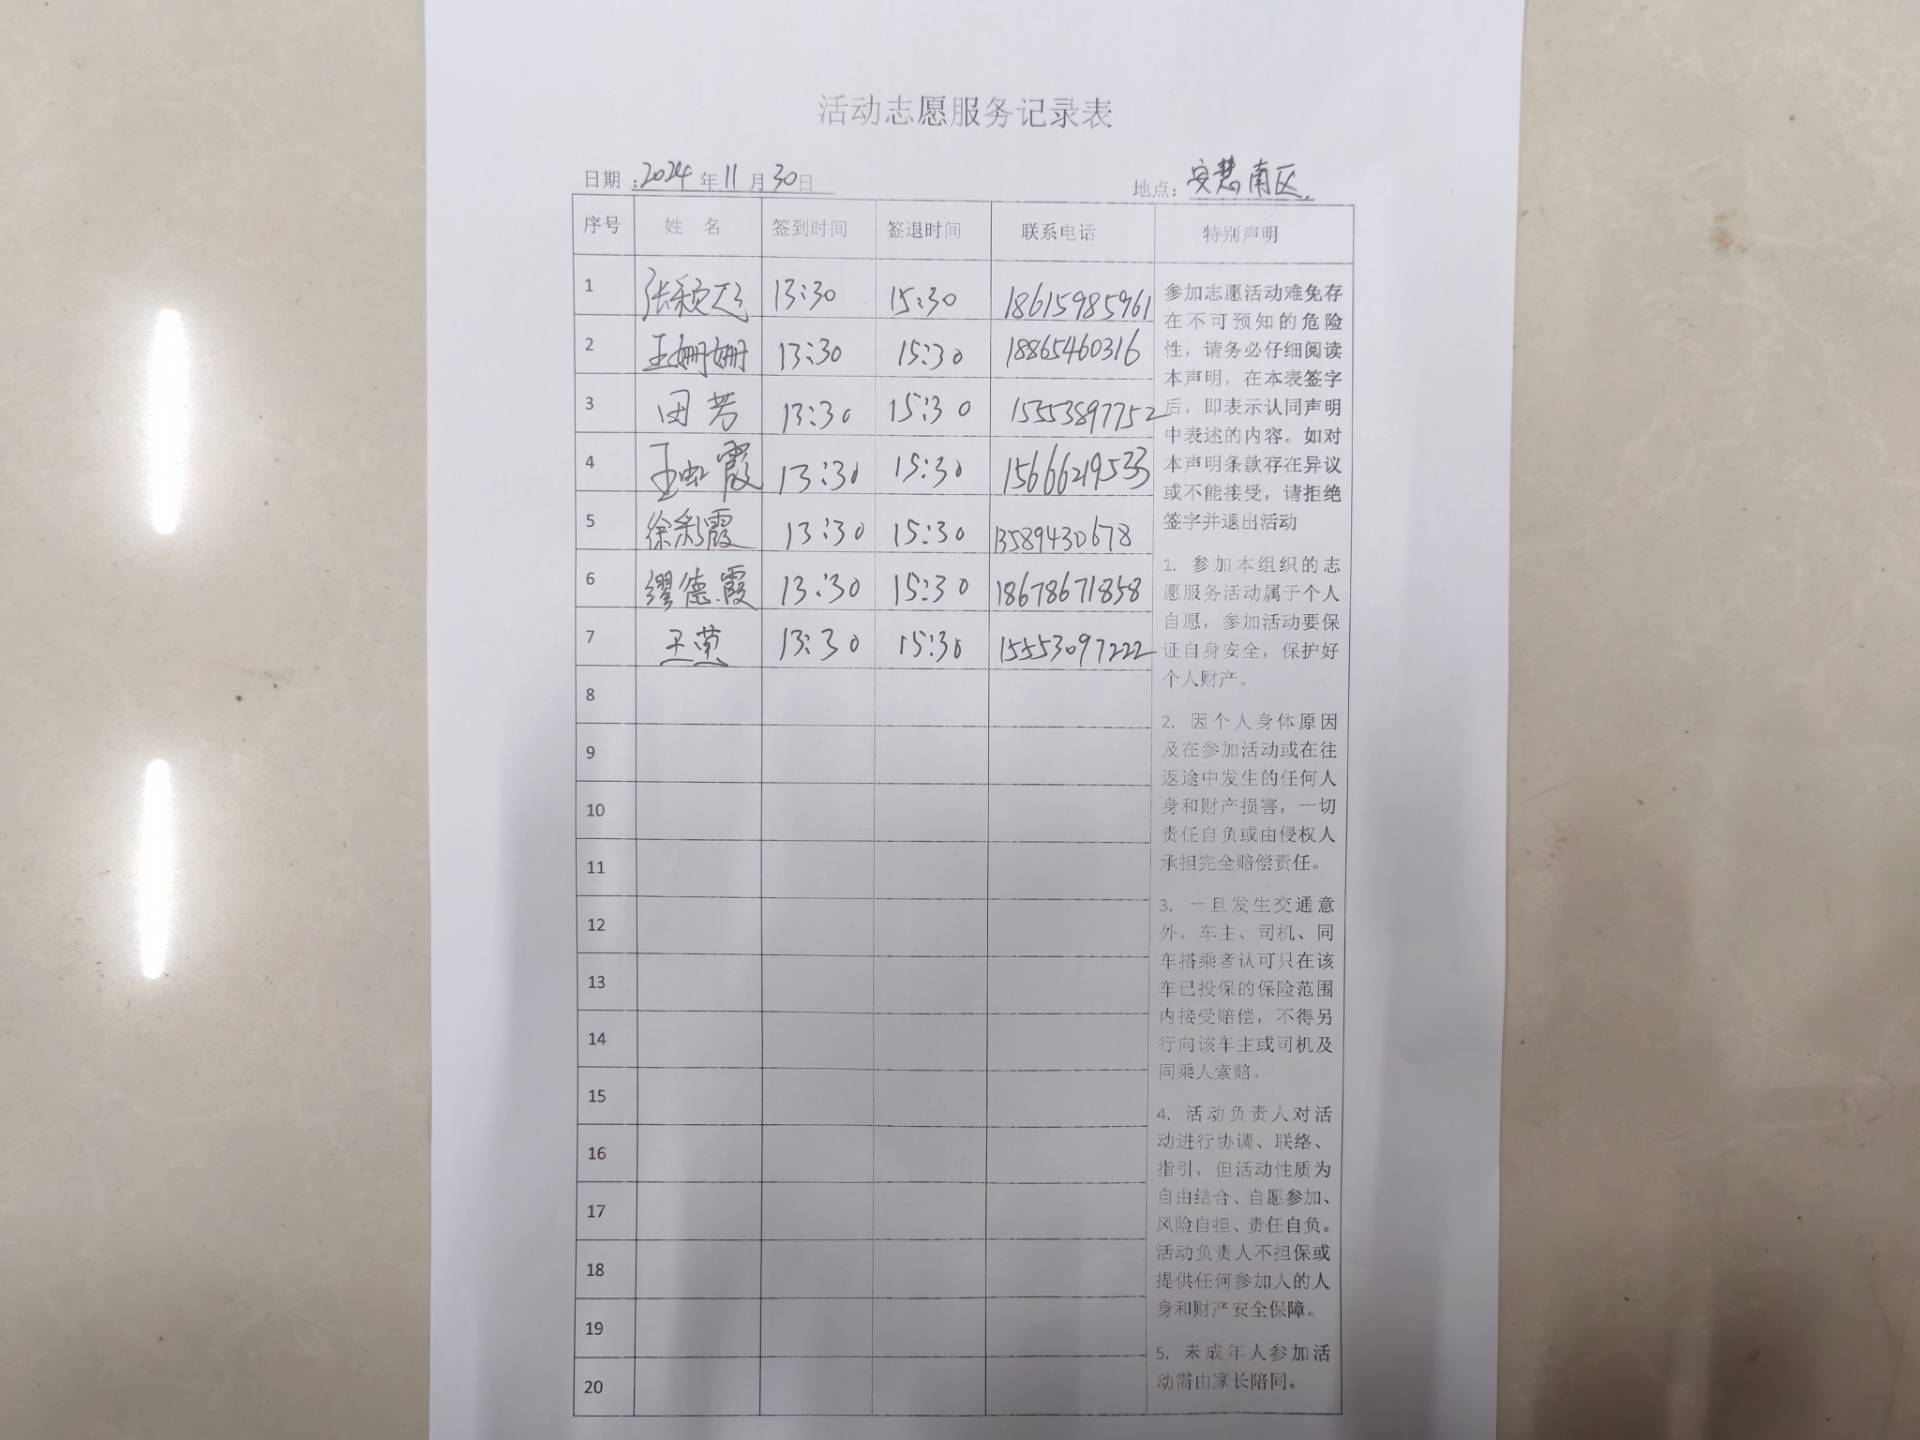 活动志愿服务记录表
日期：2024年11月30日 地点：安慧南区
序号 姓 名 签到时间 签退时间 联系电话 特别声明
1 13:30 15:30 18615985961
2 王姗姗 13:30 15:30 18865460316
3 田芳 13:30 15:30 15553897752
4 王虹霞 13:30 15:30 15666219533
5 徐彩霞 13:30 15:30 13589430678
6 缪德霞 13:30 15:30 18678671858
7 13:30 15:30 15553097222
8
9
10
11
12
13
14
15
16
17
18
19
20
参加志愿活动难免存
在不可预知的危险
性，请务必仔细阅读
本声明，在本表签字
后，即表示认同声明
中表述的内容。如对
本声明条款存在异议
或不能接受，请拒绝
签字并退出活动
1. 参加本组织的志
愿服务活动属于个人
自愿，参加活动要保
证自身安全，保护好
个人财产。
2. 因个人身体原因
及在参加活动或在往
返途中发生的任何人
身和财产损害，一切
责任自负或由侵权人
承担完全赔偿责任。
3. 一旦发生交通意
外，车主、司机、同
车搭乘者认可只在该
车已投保的保险范围
内接受赔偿，不得另
行向该车主或司机及
同乘人索赔。
4. 活动负责人对活
动进行协调、联络、
指引，但活动性质为
自由结合、自愿参加、
风险自担、责任自负。
活动负责人不担保或
提供任何参加人的人
身和财产安全保障。
5. 未成年人参加活
动需由家长陪同。